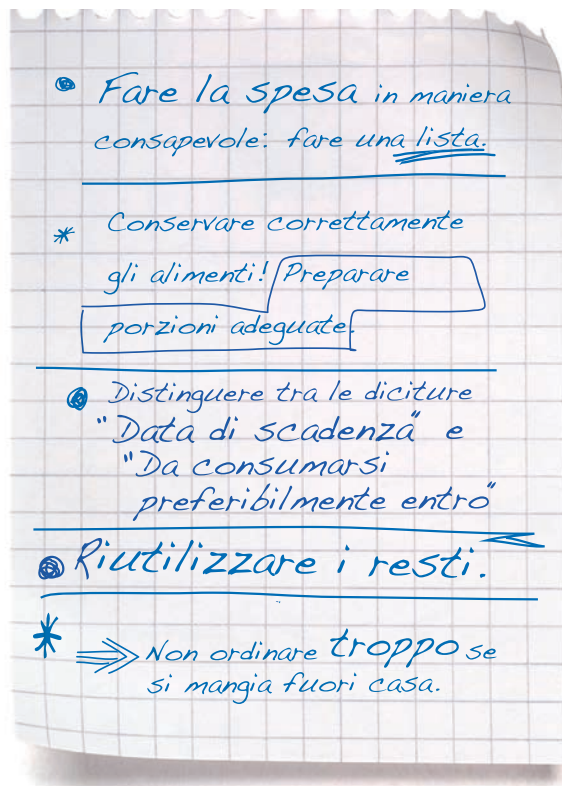 Fare la spesa in maniera
consapevole: fare una lista.
Conservare correttamente
gli alimenti! Preparare
porzioni adeguate.
Distinguere tra le diciture
"Data di scadenza" e
"Da consumarsi
preferibilmente entro"
Riutilizzare i resti.
Non ordinare troppo se
si mangia fuori casa.